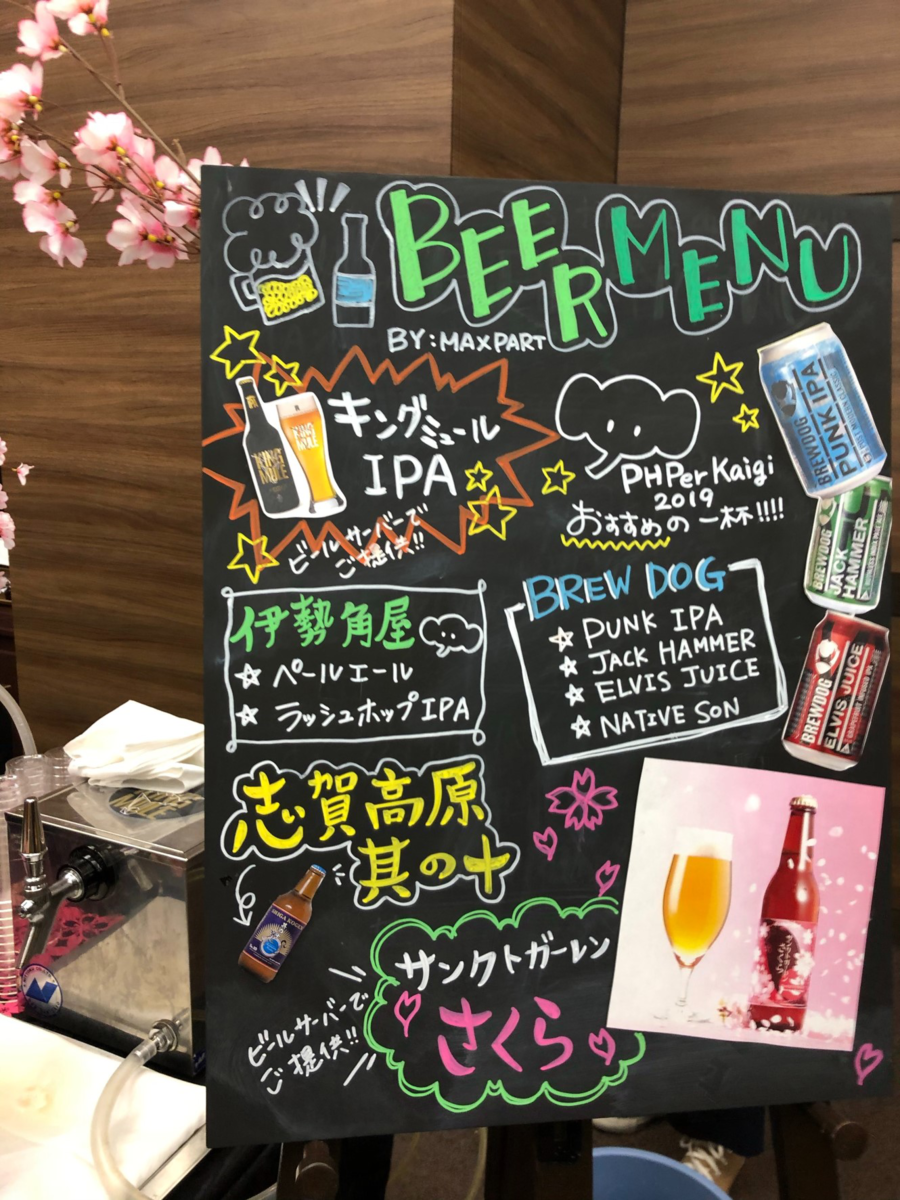 BEER MENU
BY:MAXPART
キングミュール
IPA
ビールサーバーで
ご提供!!
KING
MULE
KING
MULE
PHPerKaigi
2019
おすすめの一杯!!!!
BREWDOG
PUNK IPA
BREWDOG
JACK
HAMMER
BREWDOG
ELVIS JUICE
伊勢角屋
☆ ペールエール
☆ ラッシュホップIPA
BREW DOG
☆ PUNK IPA
☆ JACK HAMMER
☆ ELVIS JUICE
☆ NATIVE SON
志賀高原
其の十
サンクトガーレン
さくら
ビールサーバーで
ご提供!!